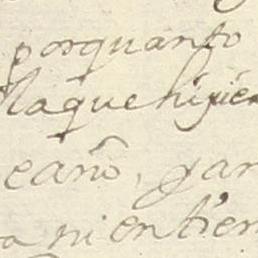 porquanto
la que hizier
eaño, y an
a ni en tien